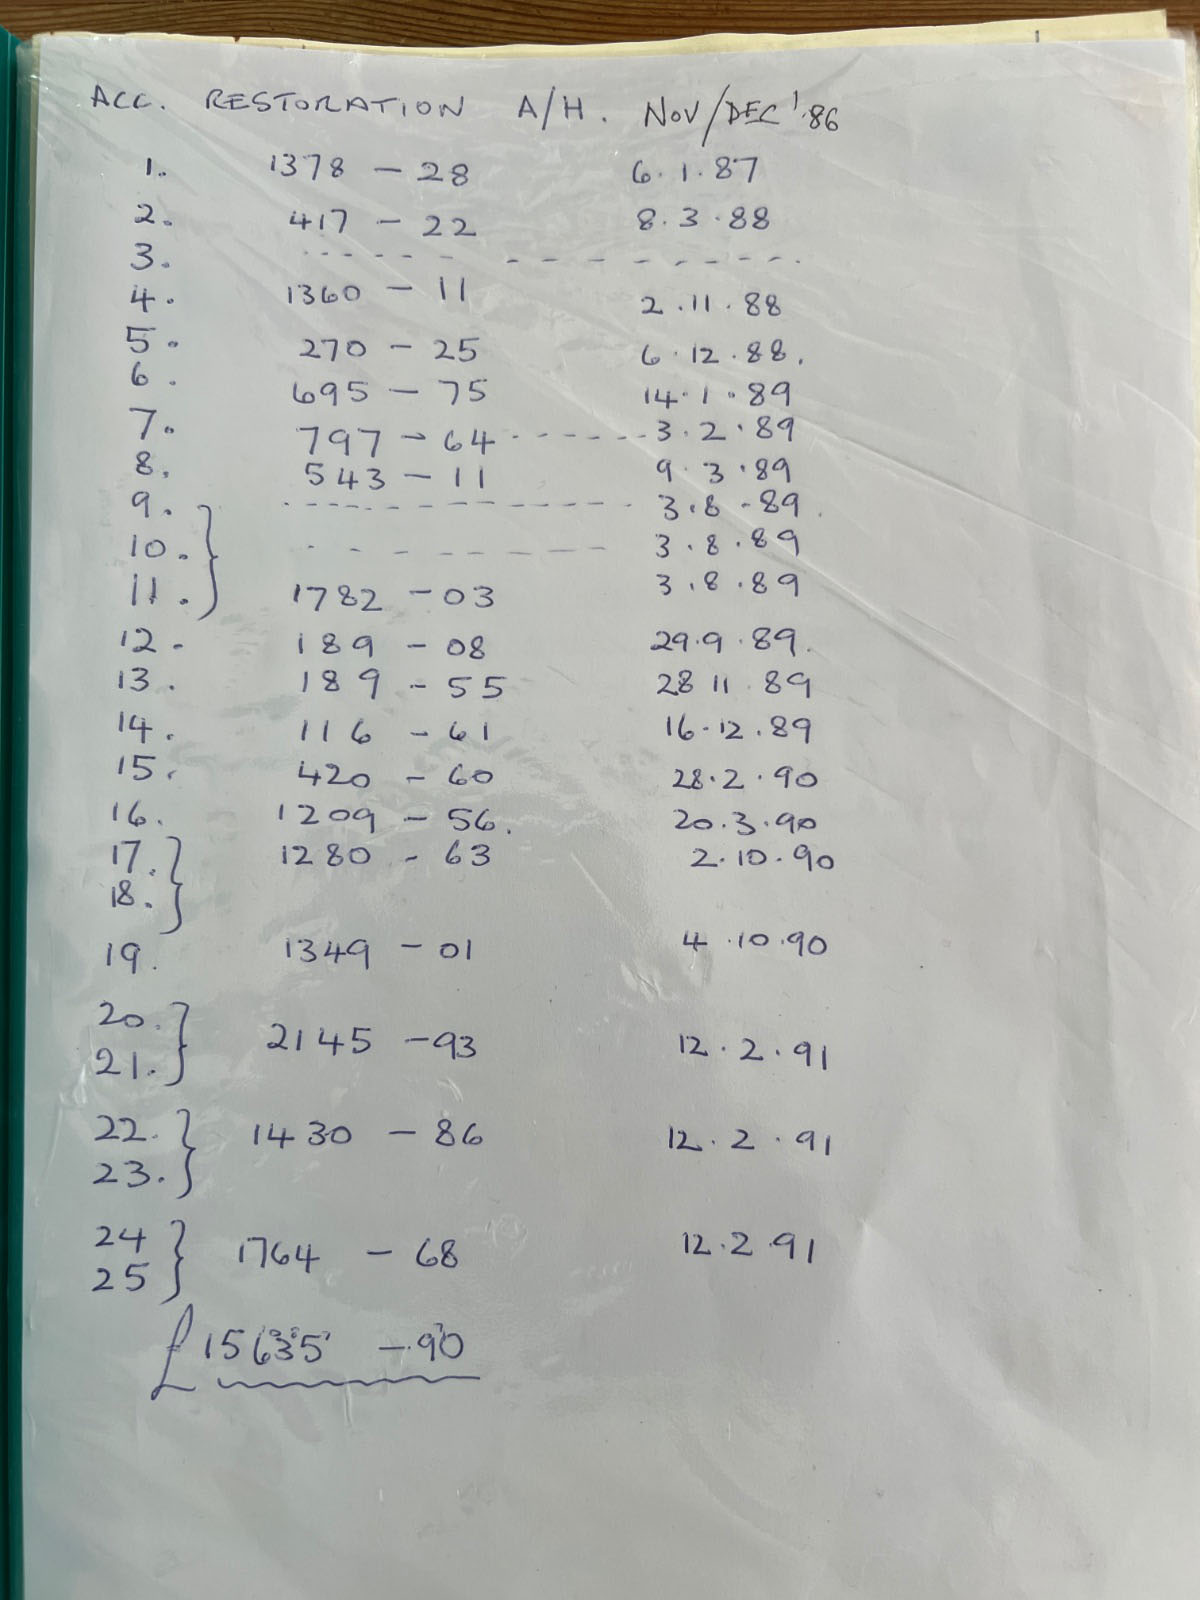 ACC. RESTORATION A/H. NOV/DEC '86
1. 1378 - 28 6.1.87
2. 417 - 22 8.3.88
3. - - - - - - - - - - - - - -
4. 1360 - 11 2.11.88
5. 270 - 25 6.12.88.
6. 695 - 75 14.1.89
7. 797 - 64 - - - - - - 3.2.89
8. 543 - 11 9.3.89
9. - - - - - - - - - - - - - 3.8.89.
10. - - - - - - - - - 3.8.89
11. 1782 - 03 3.8.89
12. 189 - 08 29.9.89.
13. 189 - 55 28 11 89
14. 116 - 61 16.12.89
15. 420 - 60 28.2.90
16. 1209 - 56. 20.3.90
17. 1280 - 63 2.10.90
18.
19. 1349 - 01 4.10.90
20.
21. 2145 - 93 12.2.91
22. 1430 - 86 12.2.91
23.
24 1764 - 68 12.2.91
25
£15635 - 90